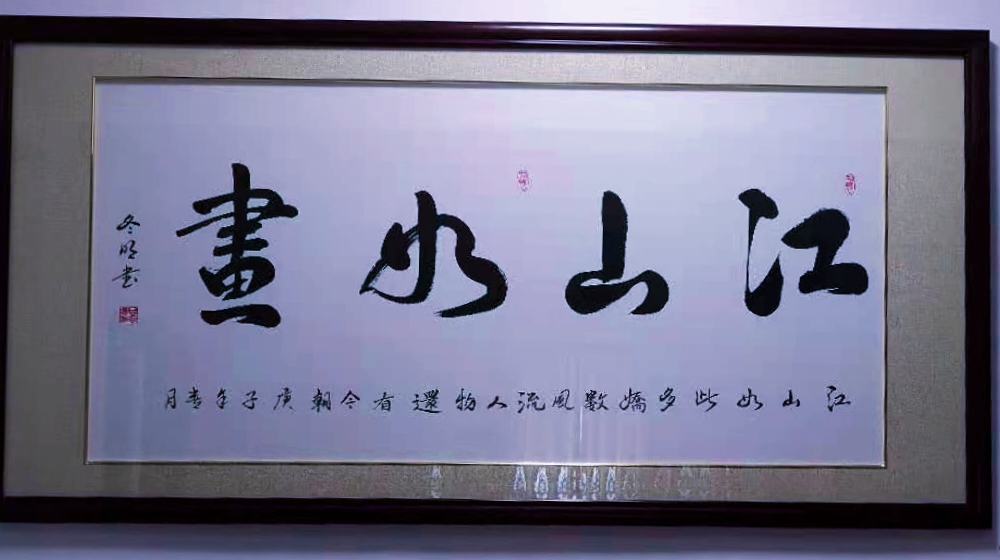 江山如畫
江山如此多嬌數風流人物還看今朝庚子年春月
冬明书